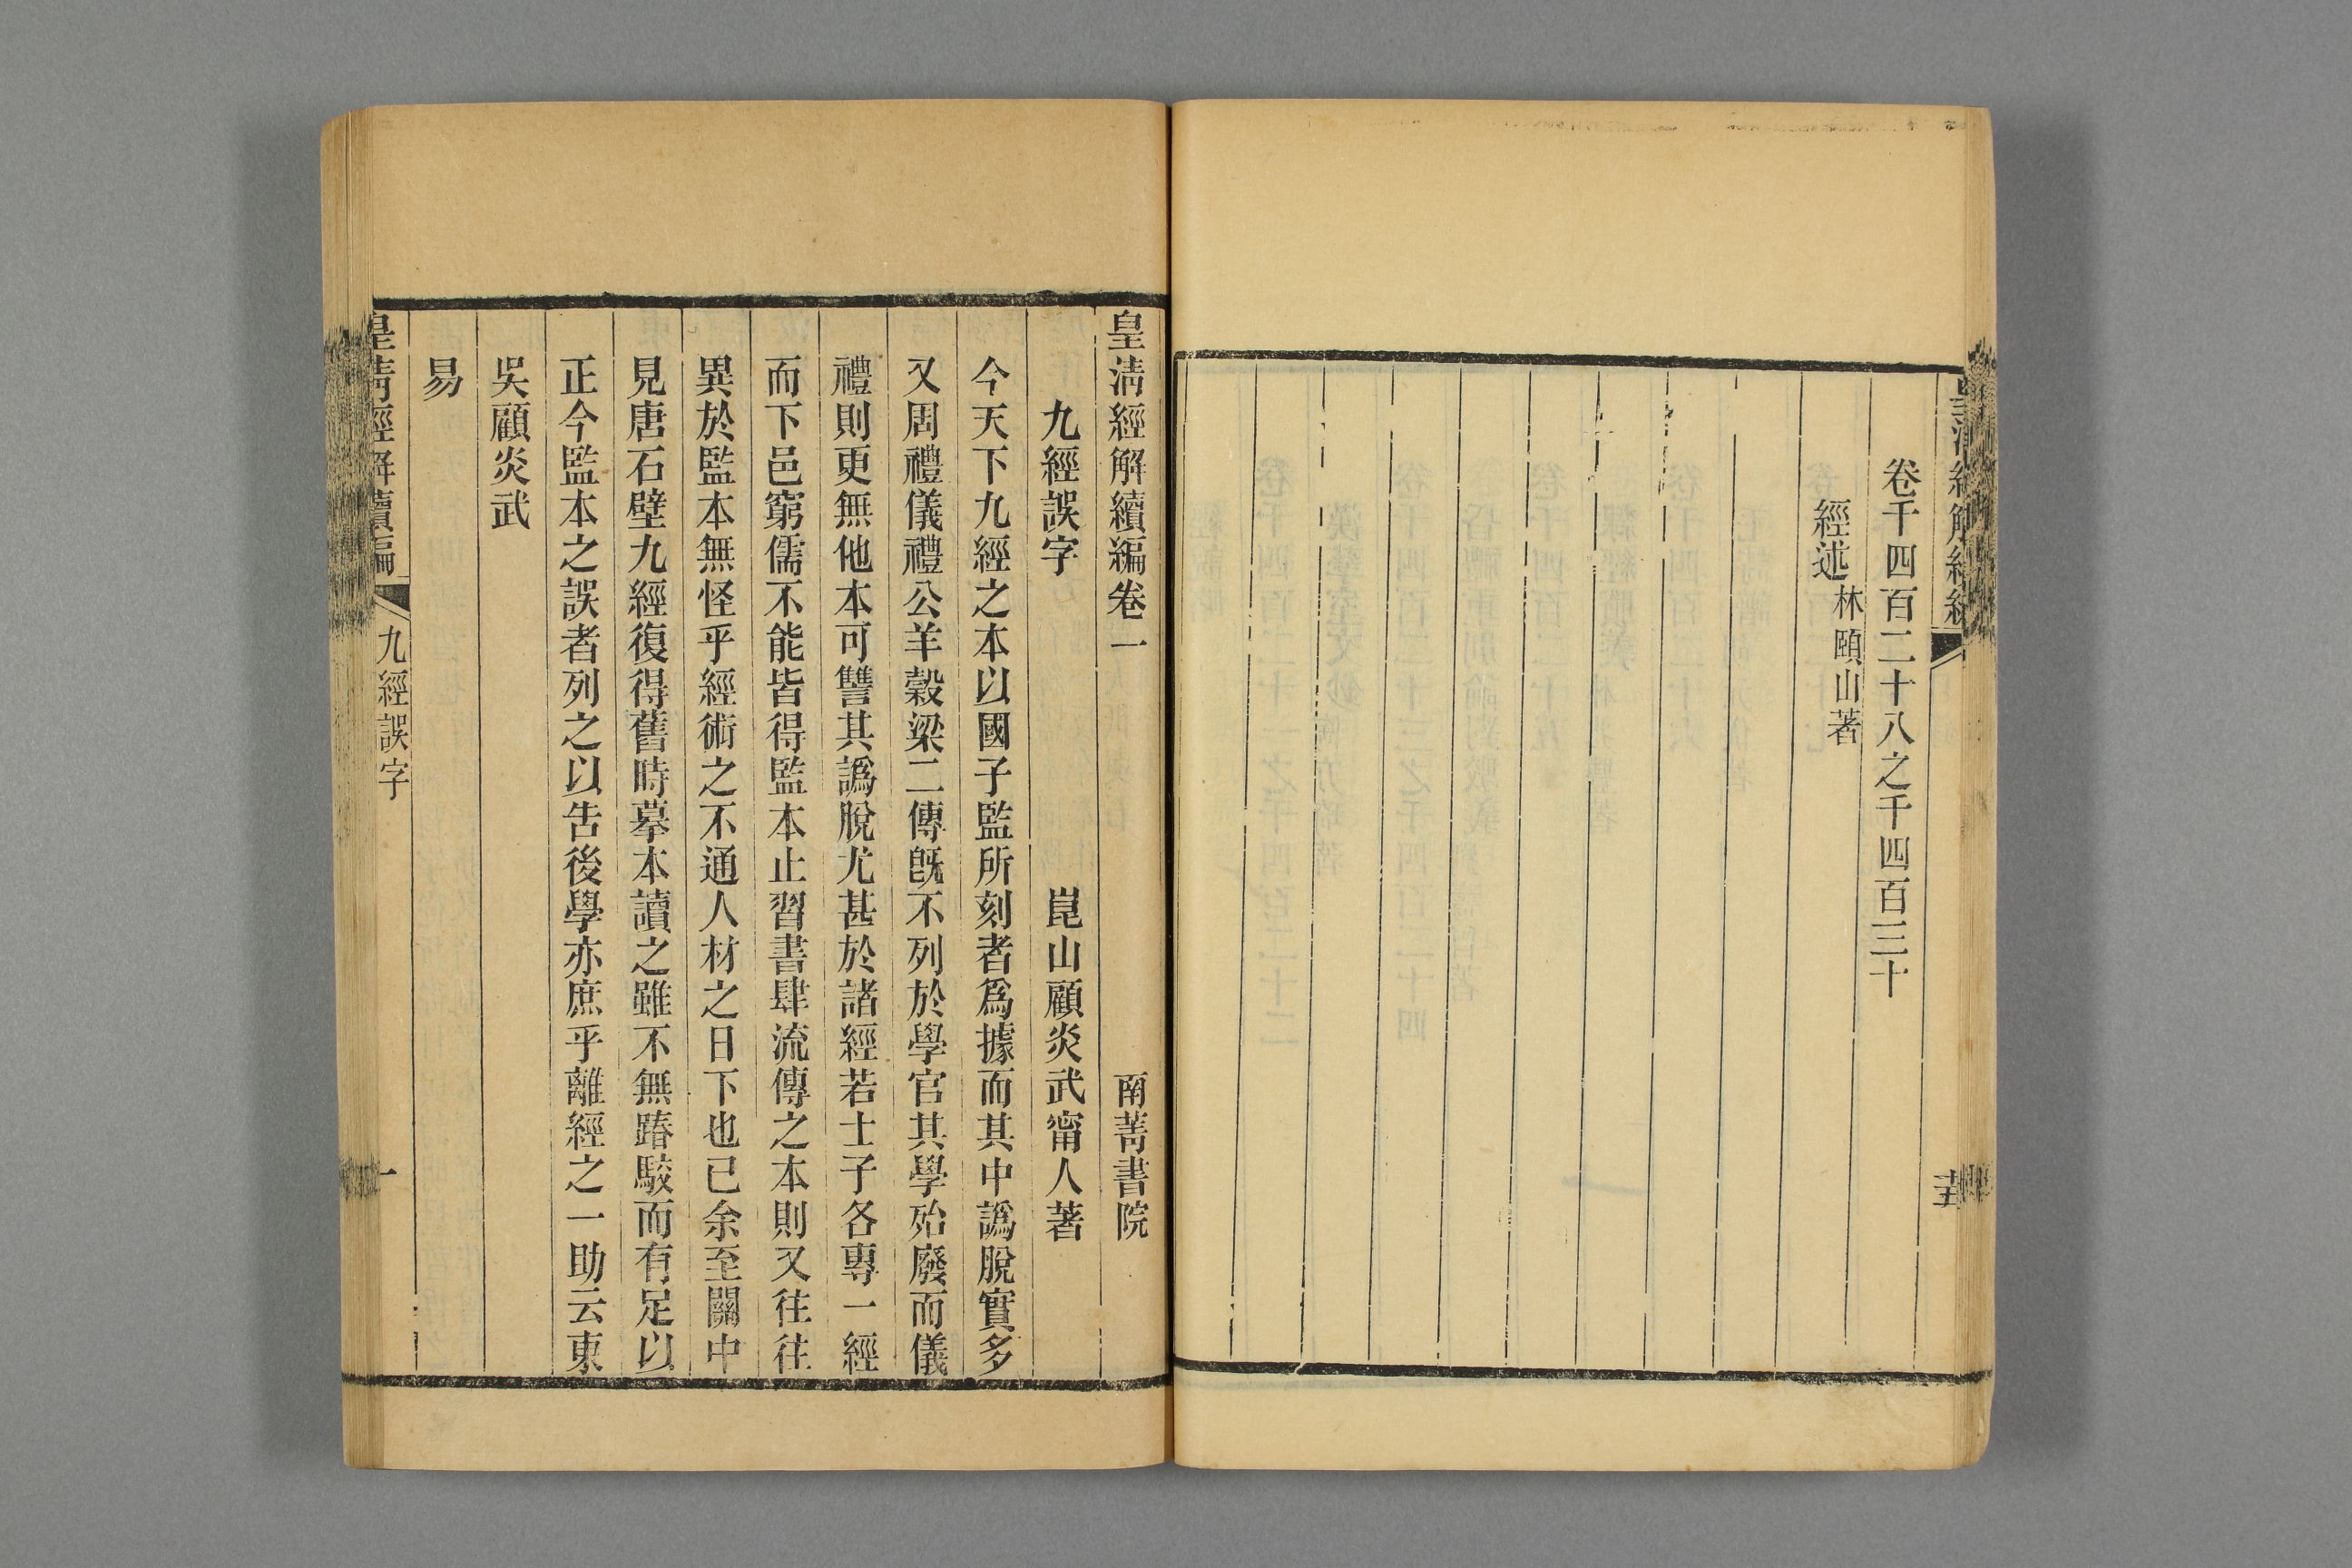 卷千四百二十八之千四百三十
經述 林頤山著
皇清經解續編卷一 南菁書院
九經誤字 崑山顧炎武甯人著
今天下九經之本以國子監所刻者爲據而其中譌脫實多
又周禮儀禮公羊穀梁二傳旣不列於學官其學殆廢而儀
禮則更無他本可讐其譌脫尤甚於諸經若士子各專一經
而下邑窮儒不能皆得監本止習書肆流傳之本則又往往
異於監本無怪乎經術之不通人材之日下也已余至關中
見唐石壁九經復得舊時摹本讀之雖不無踳駁而有足以
正今監本之誤者列之以告後學亦庶乎離經之一助云東
吳顧炎武
易
皇清經解續編 九經誤字 一